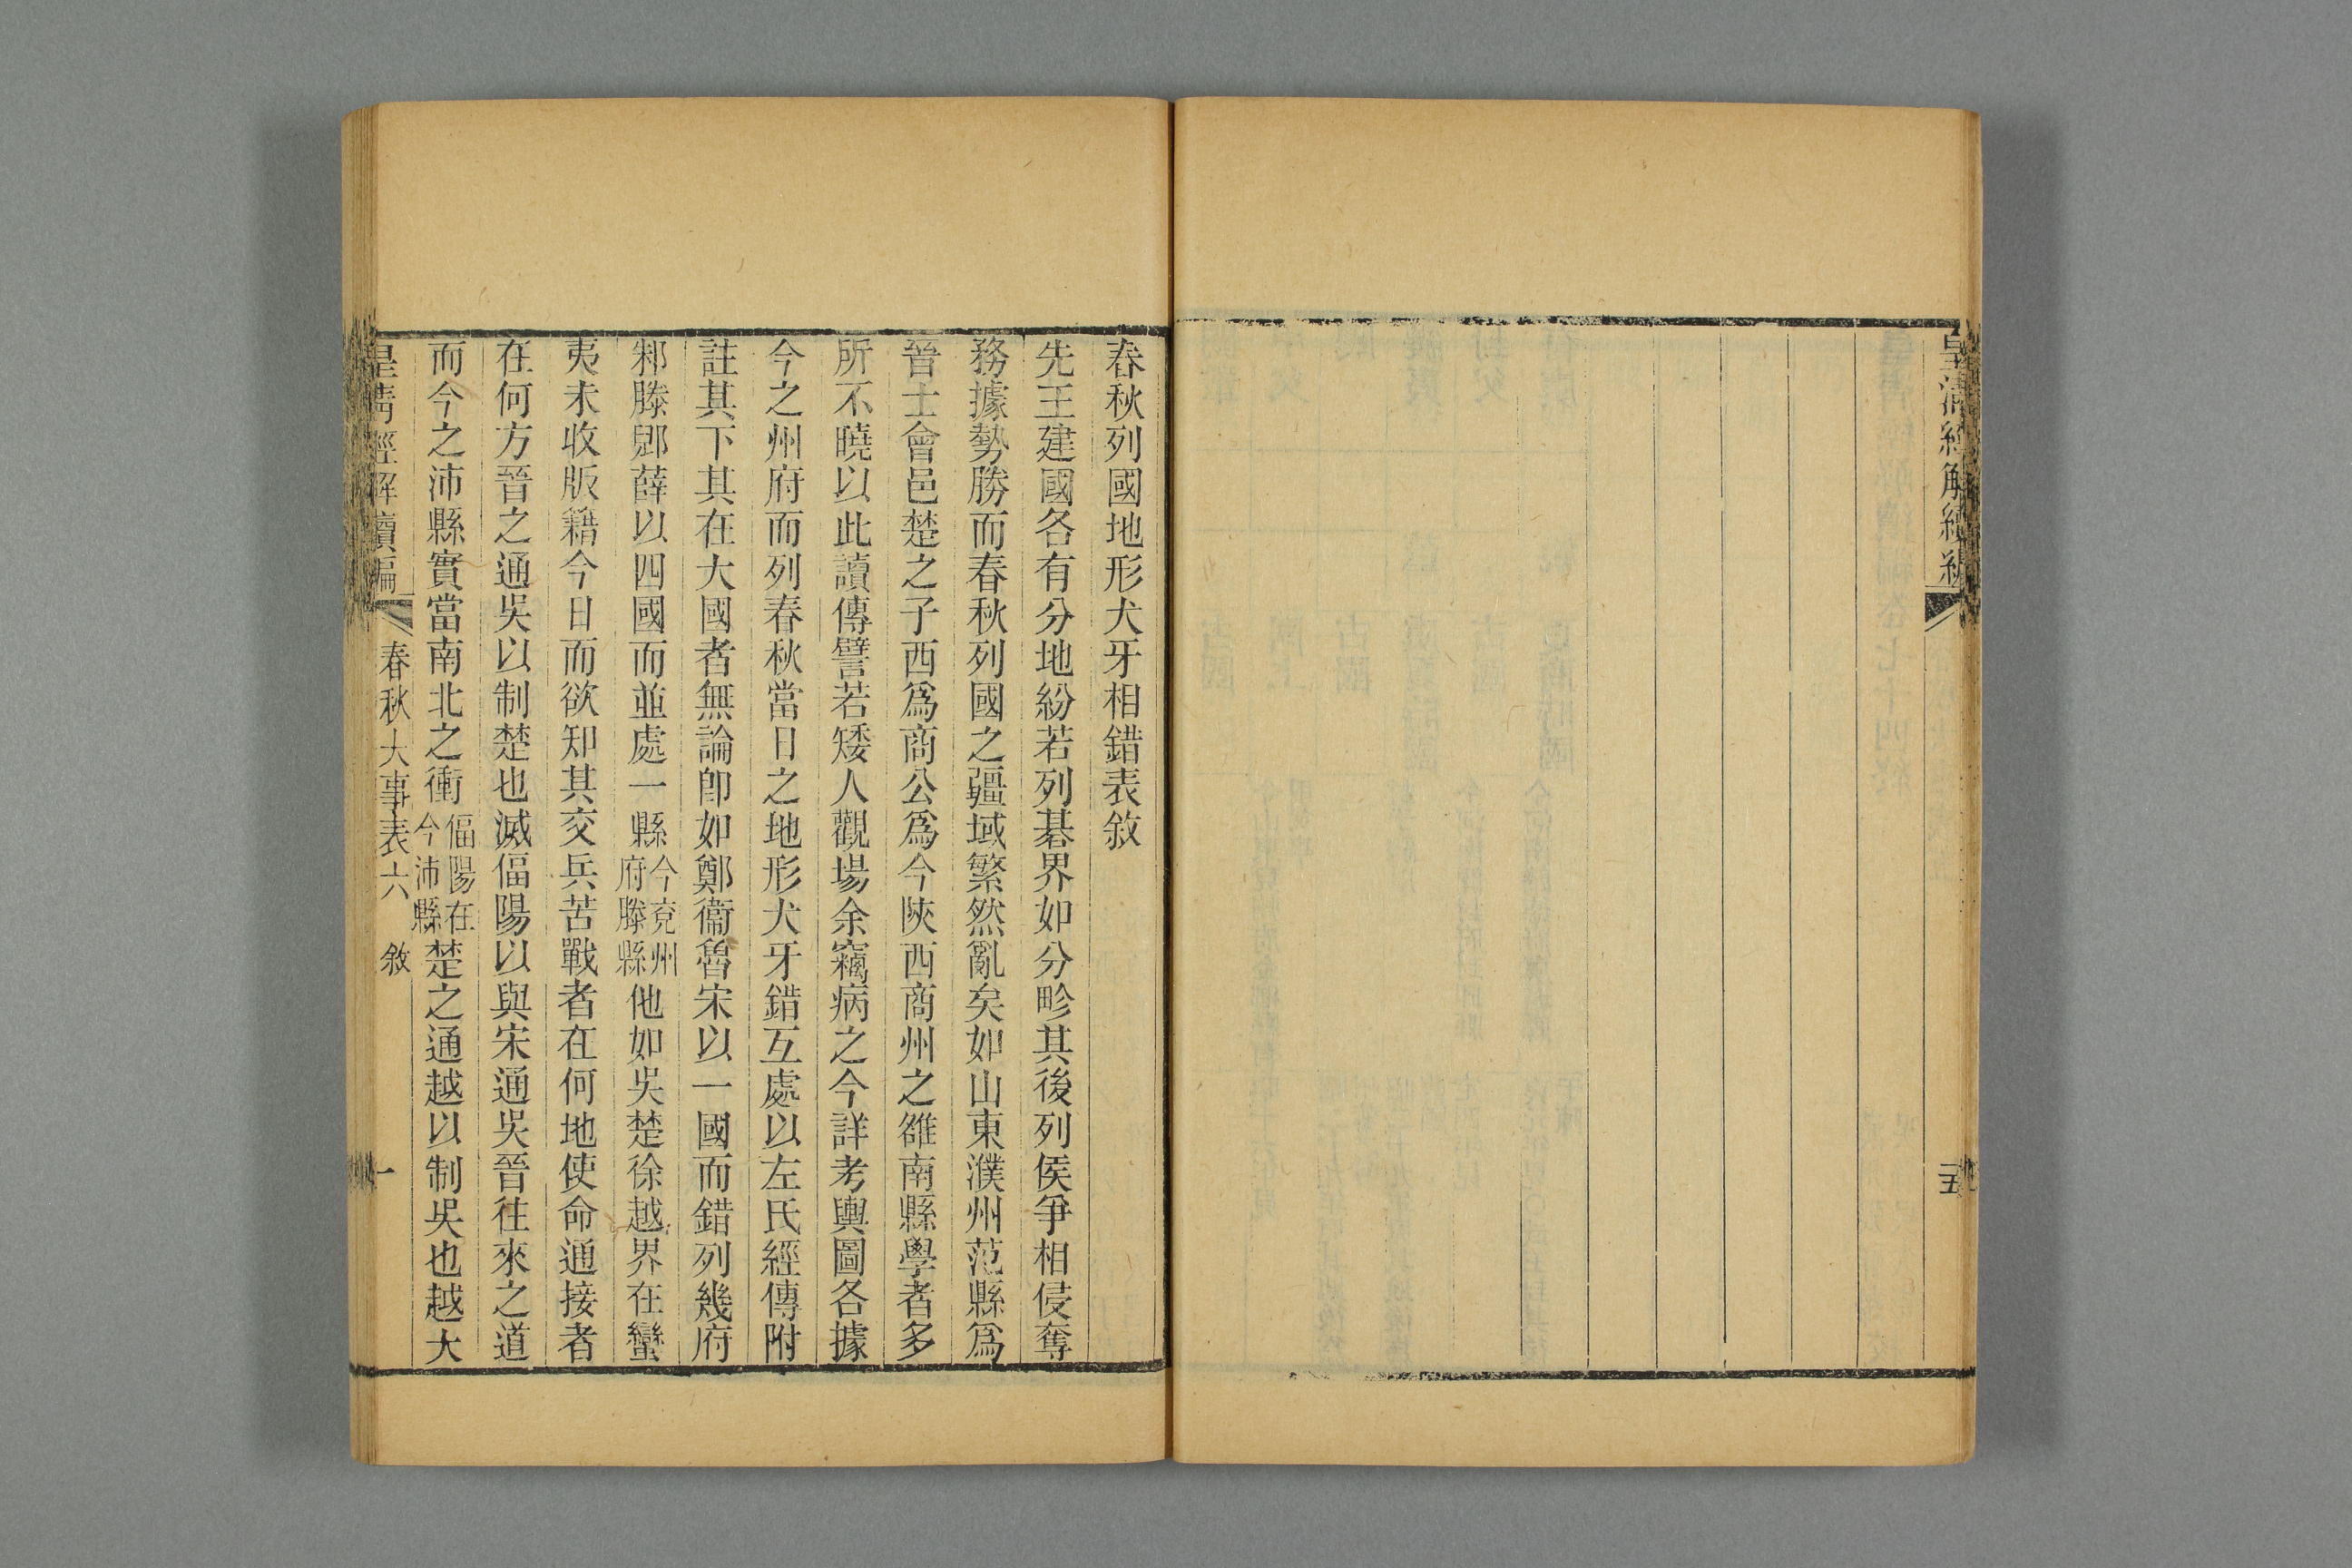 皇清經解續編
五
春秋列國地形犬牙相錯表敘
先王建國各有分地紛若列碁界如分畛其後列侯爭相侵奪
務據勢勝而春秋列國之疆域繁然亂矣如山東濮州范縣爲
晉士會邑楚之子西爲商公爲今陝西商州之雒南縣學者多
所不曉以此讀傳譬若矮人觀場余竊病之今詳考輿圖各據
今之州府而列春秋當日之地形犬牙錯互處以左氏經傳附
註其下其在大國者無論卽如鄭衞魯宋以一國而錯列幾府
邾滕郳薛以四國而並處一縣今兗州府滕縣他如吳楚徐越界在蠻
夷未收版籍今日而欲知其交兵苦戰者在何地使命通接者
在何方晉之通吳以制楚也滅偪陽以與宋通吳晉往來之道
而今之沛縣實當南北之衝偪陽在今沛縣楚之通越以制吳也越大
皇清經解續編
春秋大事表六 敘
一